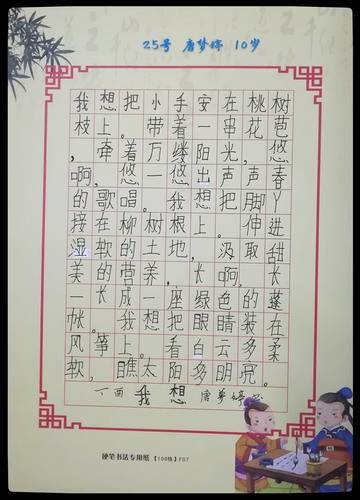 25号 唐梦婷 10岁
我想把小手安在桃树
枝上。带着一串花苞
，牵着万缕阳光，悠
啊，悠一悠出声声春
的歌唱。我想把脚丫
接在柳树根上。伸进
湿软的土地，汲取甜
美的营养，长啊，长
一长成一座绿色的篷
帐。我想把眼睛装在
风筝上。看白云多柔
软，瞧太阳多明亮。
丁酉 我想 唐梦婷书
硬笔书法专用纸